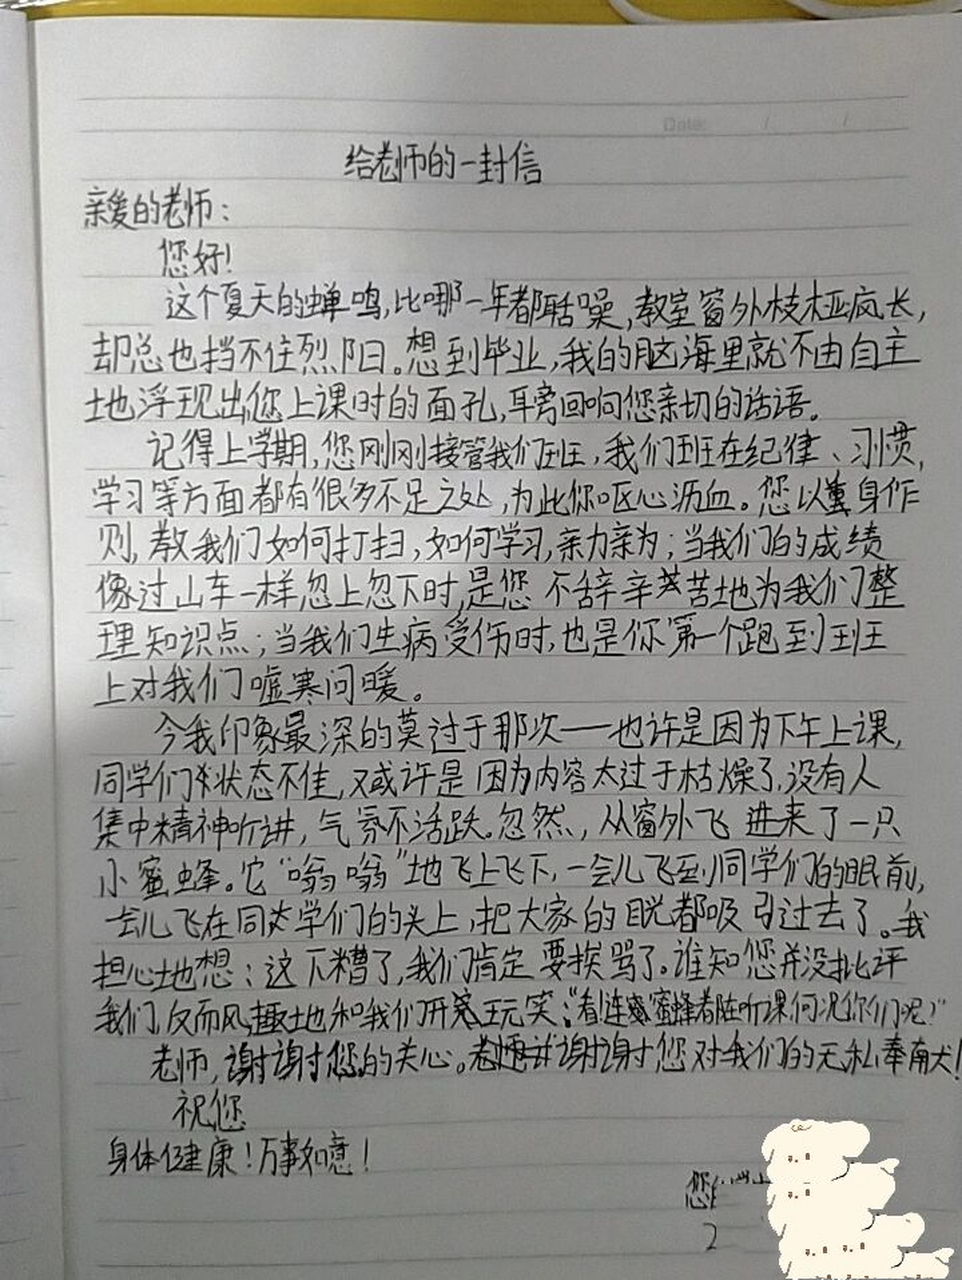 Date: / /
给老师的一封信
亲爱的老师：
您好！
这个夏天的蝉鸣,比哪一年都聒噪,教室窗外枝桠疯长,
却总也挡不住烈阳。想到毕业,我的脑海里就不由自主
地浮现出您上课时的面孔,耳旁回响您亲切的话语。
记得上学期,您刚刚接管我们班,我们班在纪律、习惯,
学习等方面都有很多不足之处,为此你呕心沥血。您以身作
则,教我们如何打扫,如何学习,亲力亲为;当我们的成绩
像过山车一样忽上忽下时,是您不辞辛苦地为我们整
理知识点;当我们生病受伤时,也是你第一个跑到班
上对我们嘘寒问暖。
令我印象最深的莫过于那次——也许是因为下午上课,
同学们状态不佳,又或许是因为内容太过于枯燥了,没有人
集中精神听讲,气氛不活跃。忽然,从窗外飞进来了一只
小蜜蜂。它“嗡嗡”地飞上飞下,一会儿飞到同学们的眼前,
一会儿飞在同学们的头上,把大家的目光都吸引过去了。我
担心地想:这下糟了,我们肯定要挨骂了。谁知您并没批评
我们,反而风趣地和我们开玩笑:“看!连蜜蜂都在听课,何况你们呢!”
老师,谢谢您的关心。谢谢您对我们的无私奉献!
祝您
身体健康!万事如意!
您
2